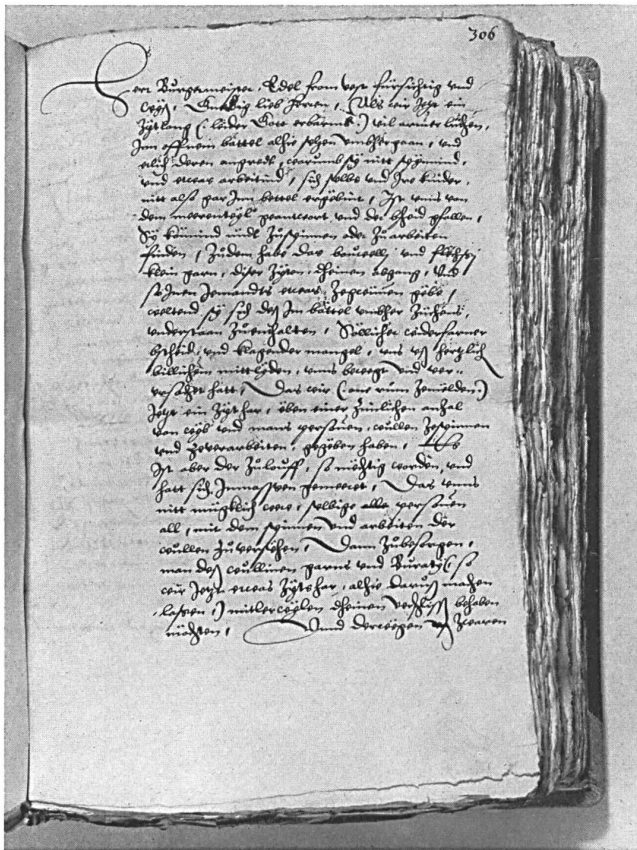 306
Herr Burgermeister, Edel from vest fürsichtig und
wyß, Gnedig lieb Herren, Als wir jetzt ein
Zytlang (: leider Gott erbarms :) vil armer lüthen,
Im offnem bättel alhie sehen umbhergaan, und
etlich deren angredt, warumb sy nitt spynnind,
und etwas arbeitind, sich selbs und Ire kinder,
nitt also gar Im bettel ergebind, Ist uns von
dem meerentheyl geantwort und der bscheid gfallen,
Sy könnind nüdt Zuspinnen oder Zu arbeiten
finden, Zudem habe das bauwelly und
klein garn, diser Zyten, dheinen abgang, Und
so Inen Jemandts etwas Zegwünnen gebe,
weltend sy sich deß Im bättel umbher Züchens,
understaan Zu enthalten, Söllicher
bscheid, und klagender mangel, uns uß hertzlich
billichem mittlyden, unns bewegt und ver-
ursachet hatt, Das wir (: one rum Zemelden :)
Jetzt ein Zyt har, eben einer Zimlichen anzal
von wyb und mans personen, wullen Zespinnen
und Zeverarbeiten, gegeben haben, So
Ist aber der Zulouff, so mächtig worden, und
hatt sich Innmassen gemeeret, Das unns
nitt mügklich were, selbige alle personen
all, mit dem spinnen und arbeiten der
wullen Zu versehen, Dann Zubesorgen,
man deß wullinen garns und Buratys (: so
wir Jetzt etwas Zyts har, alhie daruß machen
lassen :) mitlerwylen dheinen verschluß behaben
möchten, Und derwegen uß Zwaren